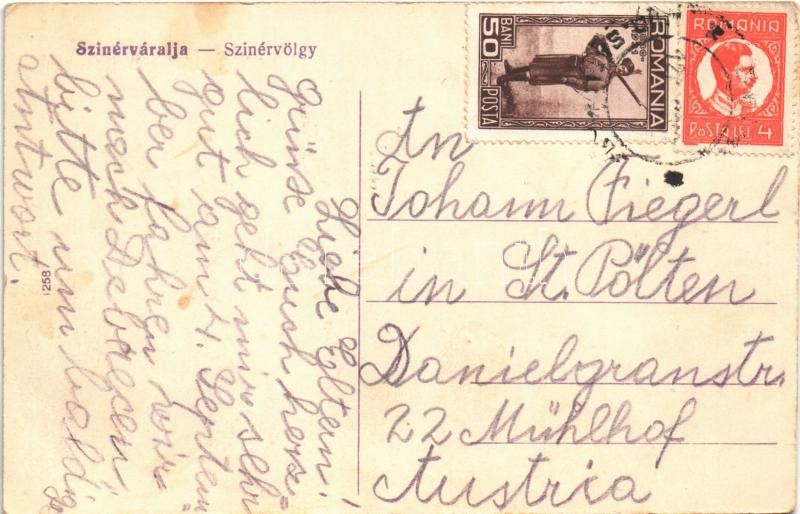 Szinérváralja — Szinérvölgy
BANI 50
ROMANIA
POSTA
ROMANIA
POSTA LEI 4
Liebe Eltern!
Grüsse Euch herz=
lich geht mir sehr
gut am 4. Septem
ber fahren wir
nach Debrecen
bitte um baldige
Antwort.
An
Johann Fiegerl
in St. Pölten
Danielgranstr.
22 Mühlhof
Austria
1258